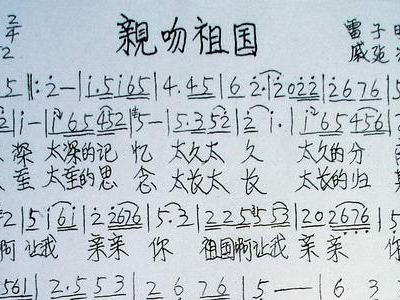 2 親吻祖国 雷子
2 戚
5 ‖: 2 – | i. 5 i 6 5 | 4. 4 5 | 6 2. | 2 0 2 2 | 2 6 7 6 | 5
2 | i – | i 6 5 4 5 2 | 5 – | 5. 3 5 2 | 2 i. | i 6 5 4 5 6 |
深 太深的记 忆 太久太 久 太久的分
重 太重的思 念 太长太 长 太长的归
2 | 5 i 6 i | 2 2 6 7 6 | 5. 3 | 2 2 5 5 5 3 | 2 0 2 6 7 6 | 5
啊 让我 亲亲 你 祖国啊让我 亲亲 你
5 6 1 | 2. 5 5 3 | 2 6 7 6 | 5 – – | 6 3